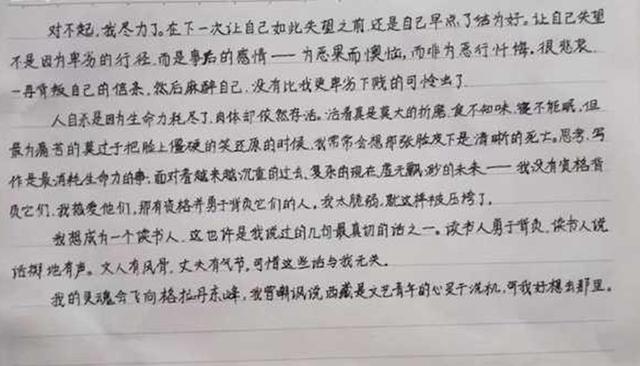 对不起，我尽力了。在下一次让自己如此失望之前还是自己早点了结为好。让自己失望
不是因为卑劣的行径，而是事后的感情——为恶果而懊恼，而非为恶行忏悔。很悲哀，
一再背叛自己的信条，然后麻醉自己，没有比我更卑劣下贱的可怜虫了。
人自杀是因为生命力耗尽了，肉体却依然存活。活着真是莫大的折磨，食不知味，寝不能眠，但
最为痛苦的莫过于把脸上僵硬的笑还原的时候，我常常会想那张脸皮下是清晰的死亡。思考、写
作是最消耗生命力的事，面对着越来越沉重的过去、复杂的现在、虚无飘渺的未来——我没有资格背
负它们，我敬爱他们，那有资格并勇于背负它们的人，我太脆弱，就这样被压垮了。
我想成为一个读书人，这也许是我说过的几句最真切的话之一。读书人勇于背负，读书人说
话掷地有声。文人有风骨，丈夫有气节，可惜这些话与我无关。
我的灵魂会飞向格拉丹东峰，我曾嘲讽说西藏是文艺青年的心灵干洗机，可我好想去那里。